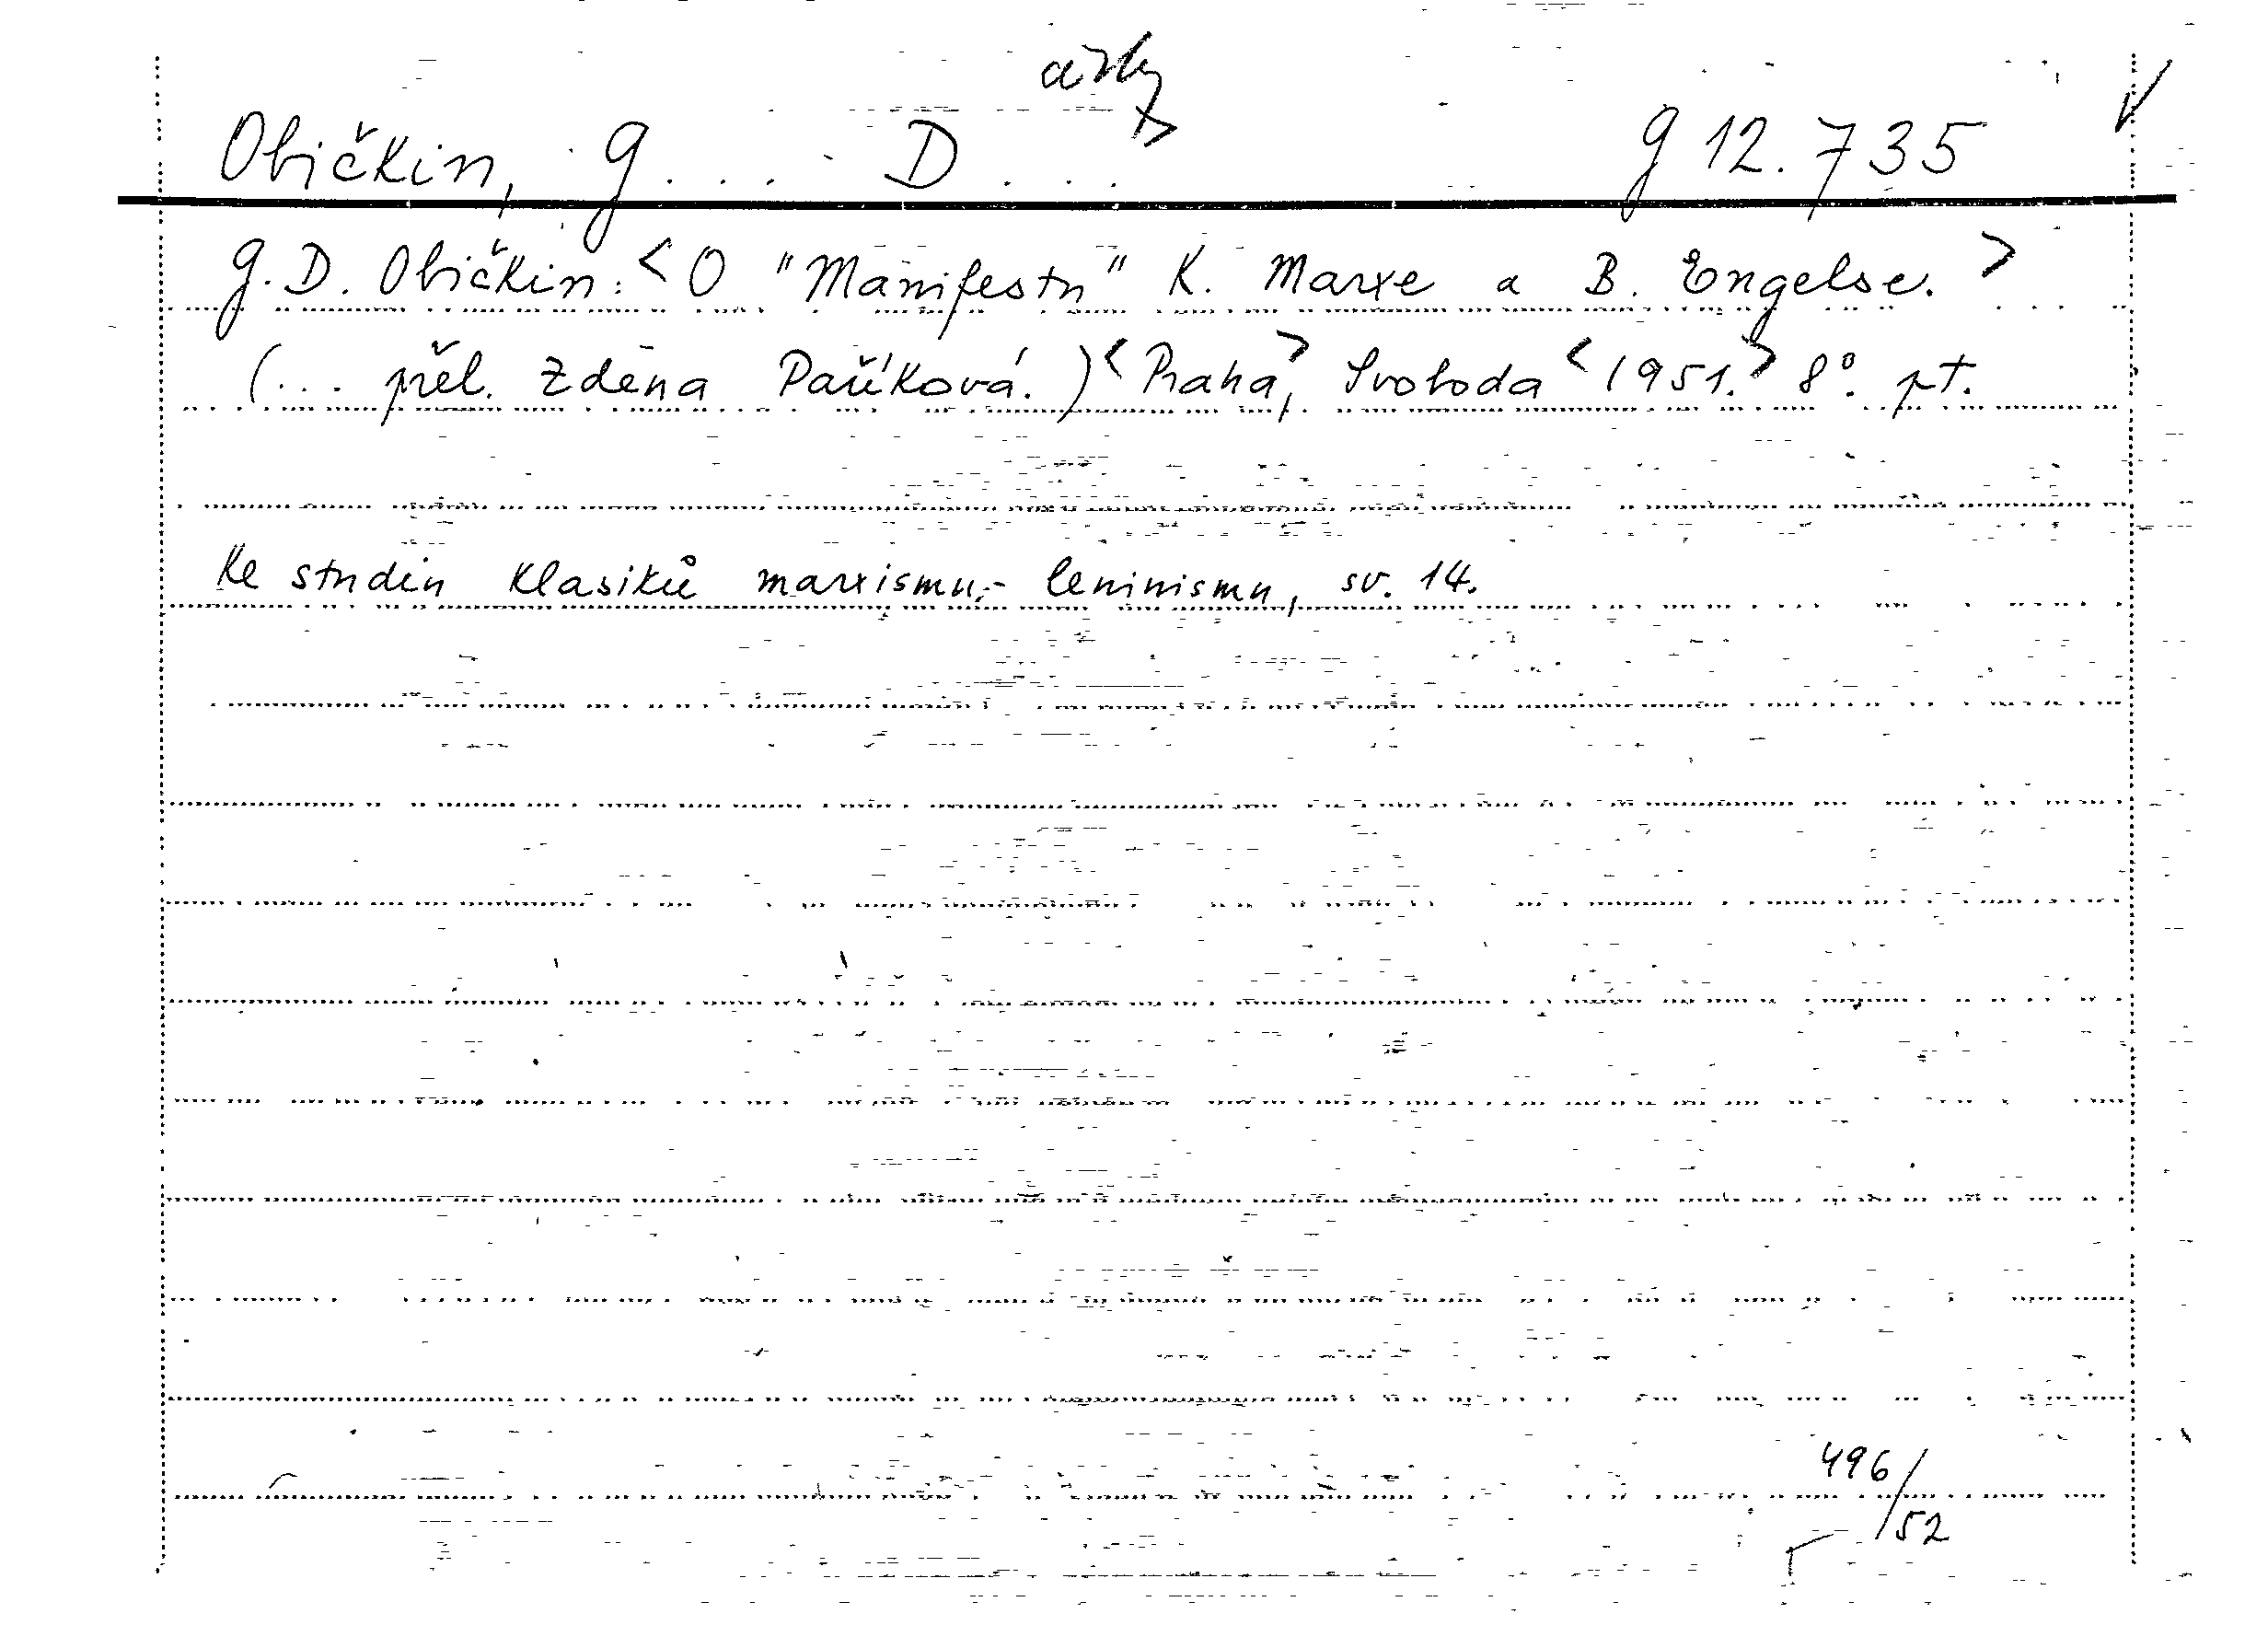 Običkin, G... D... G 12.735
G. D. Običkin: <O "Manifestu" K. Marxe a B. Engelse.>
(... přel. Zdena Paříková.) <Praha>, Svoboda <1951.> 8°. pt.
Ke studiu klasiků marxismu-leninismu, sv. 14.
496/52